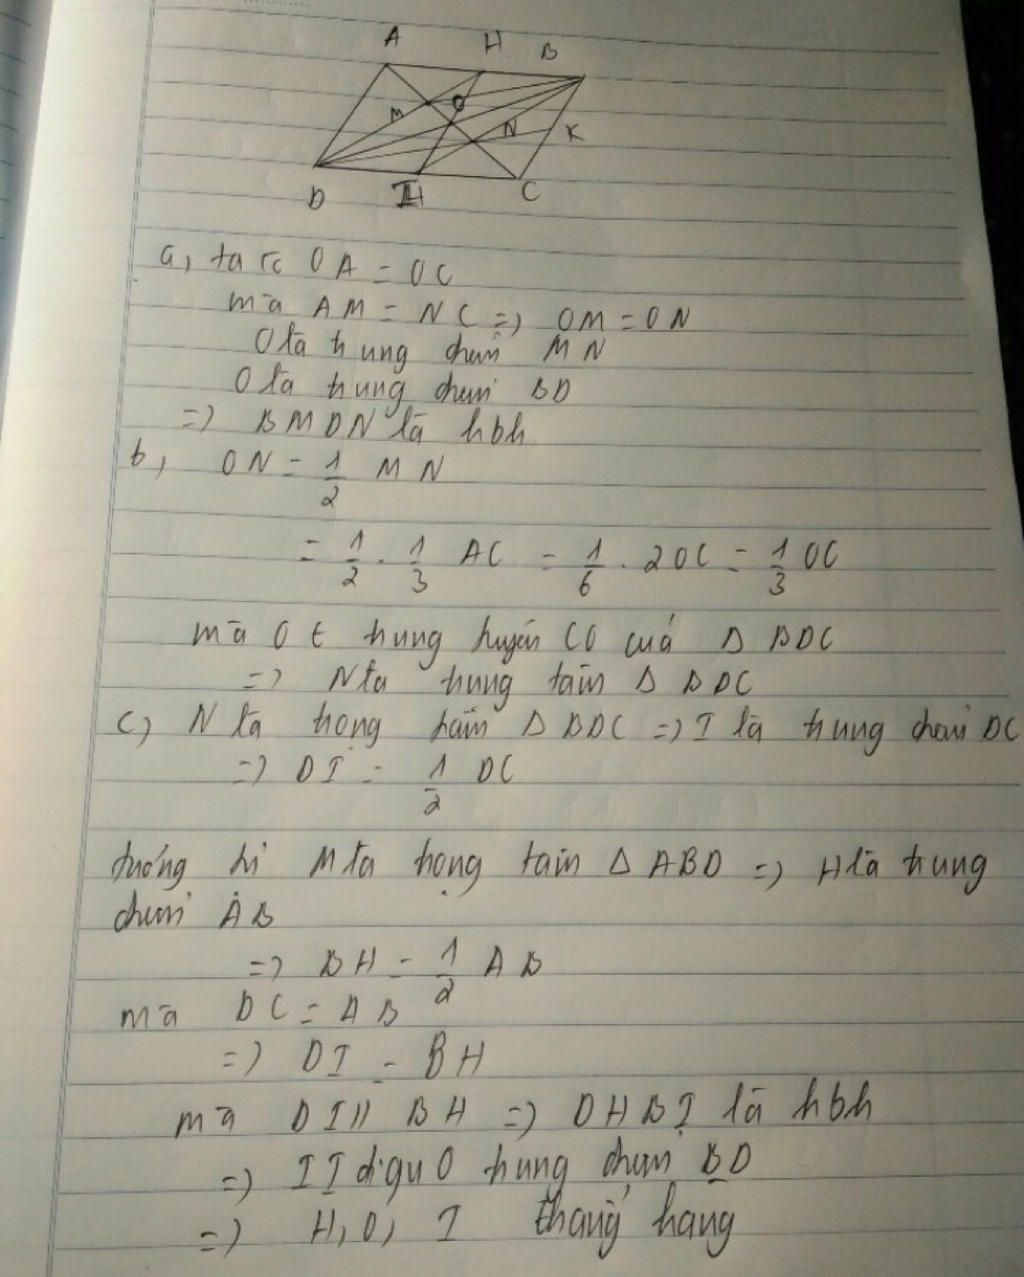 A H B
M O N K
D I H C
a, ta có OA = OC
mà AM = NC => OM = ON
O là trung điểm MN
O là trung điểm BD
=> BMDN là hbh
b, ON = 1/2 MN
= 1/2 . 1/3 AC = 1/6 . 2OC = 1/3 OC
mà O ∈ trung tuyến CO của Δ BDC
=> N là trung tâm Δ BDC
c) N là trọng tâm Δ BDC => I là trung điểm DC
=> DI = 1/2 DC
tương tự M là trọng tâm Δ ABD => H là trung
điểm AB
=> BH = 1/2 AB
mà DC = AB
=> DI = BH
mà DI // BH => DHBI là hbh
=> II đi qu O trung điểm BD
=> H, O, I thẳng hàng